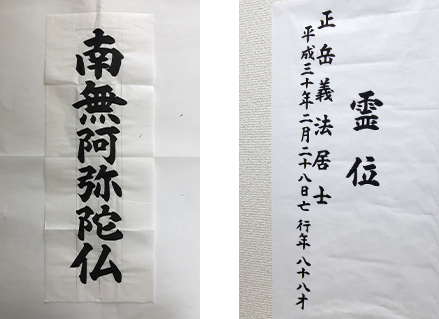 南無阿弥陀仏
霊位
正岳義法居士
平成三十年二月二十八日亡 行年 八十八才